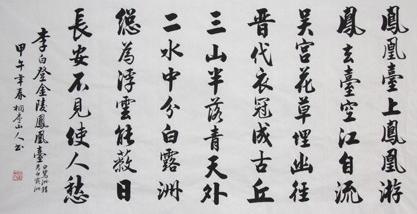 鳳凰臺上鳳凰游
鳳去臺空江自流
吴宫花草埋幽徑
晋代衣冠成古丘
三山半落青天外
二水中分白露洲
總為浮雲能蔽日
長安不見使人愁
李白登金陵鳳凰臺
甲午年春桐山人書